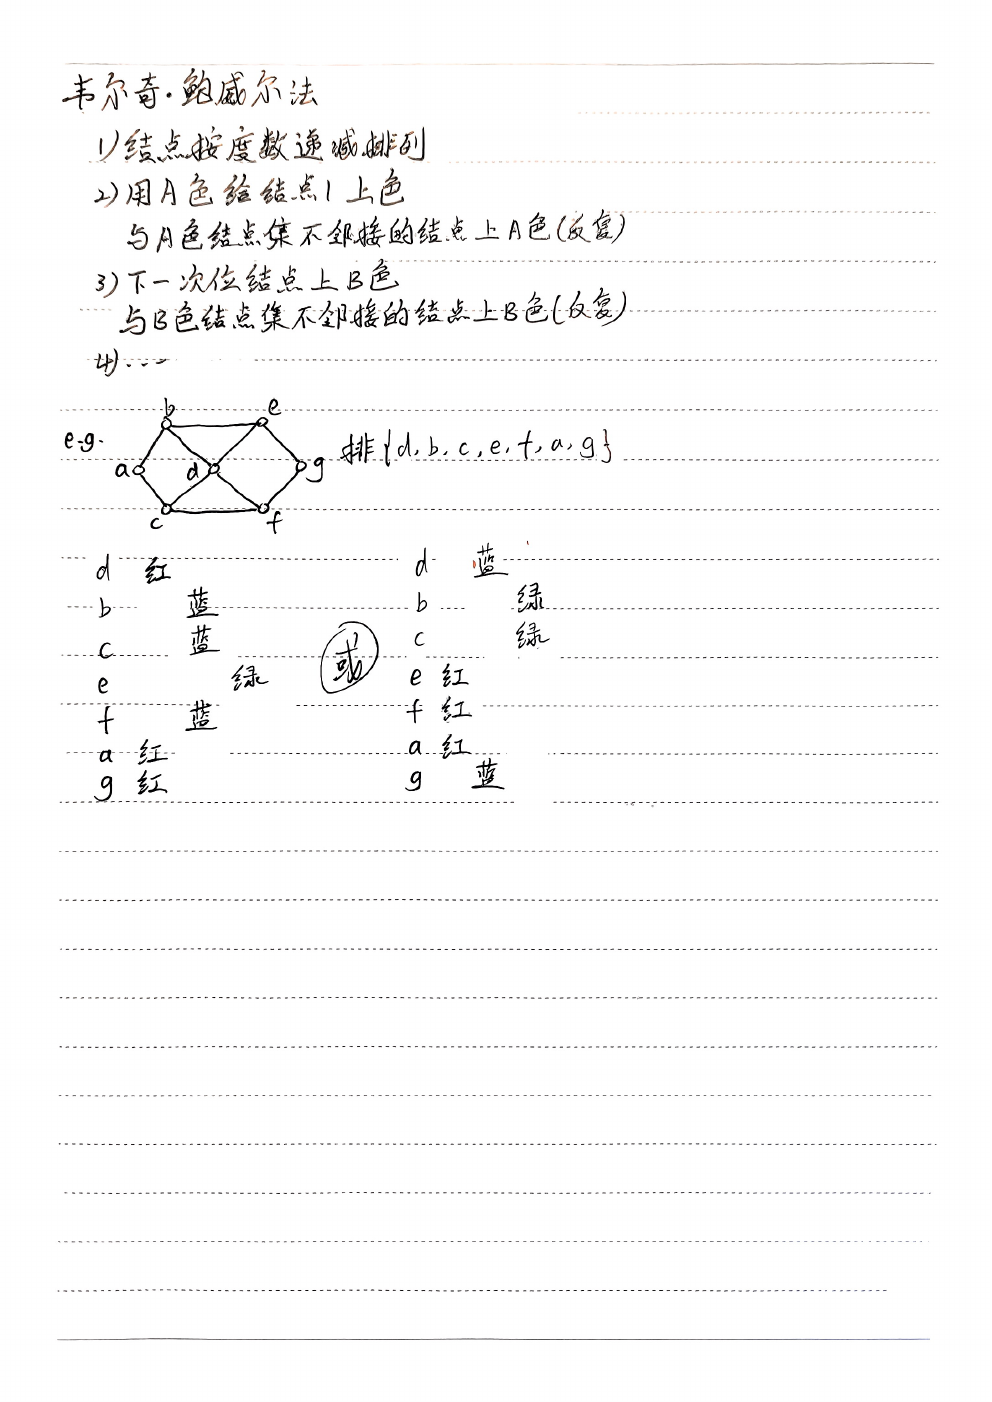 韦尔奇·鲍威尔法
1)结点按度数递减排列
2)用A色给结点1上色
与A色结点集不邻接的结点上A色(反复)
3)下一次位结点上B色
与B色结点集不邻接的结点上B色(反复)
4)...
e.g.
b e
a d g
c f
排{d,b,c,e,f,a,g}
d 红
b 蓝
c 蓝
e 绿
f 蓝
a 红
g 红
或
d 蓝
b 绿
c 绿
e 红
f 红
a 红
g 蓝